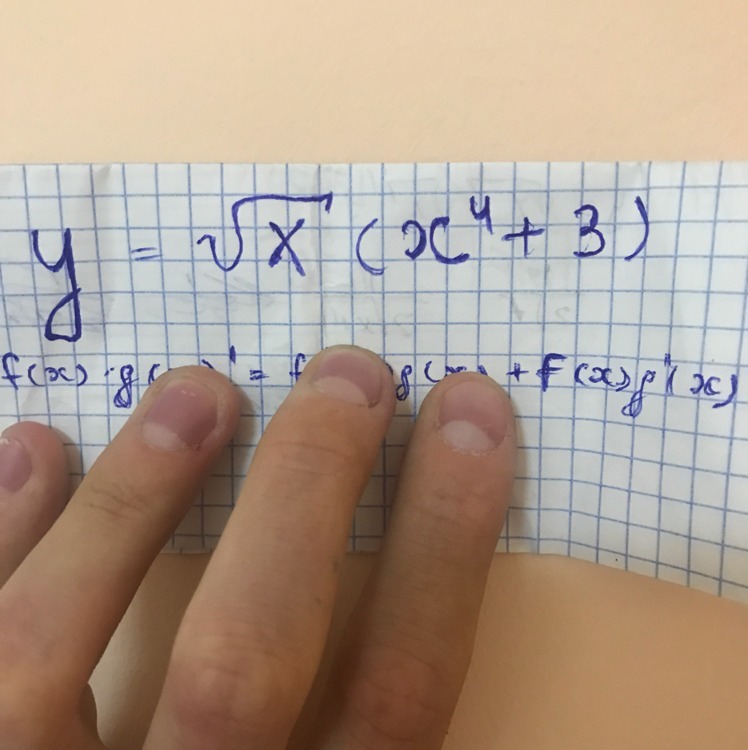 y = √x (x⁴ + 3)
f(x) · g( )' = f g(x) + F(x)g'(x)